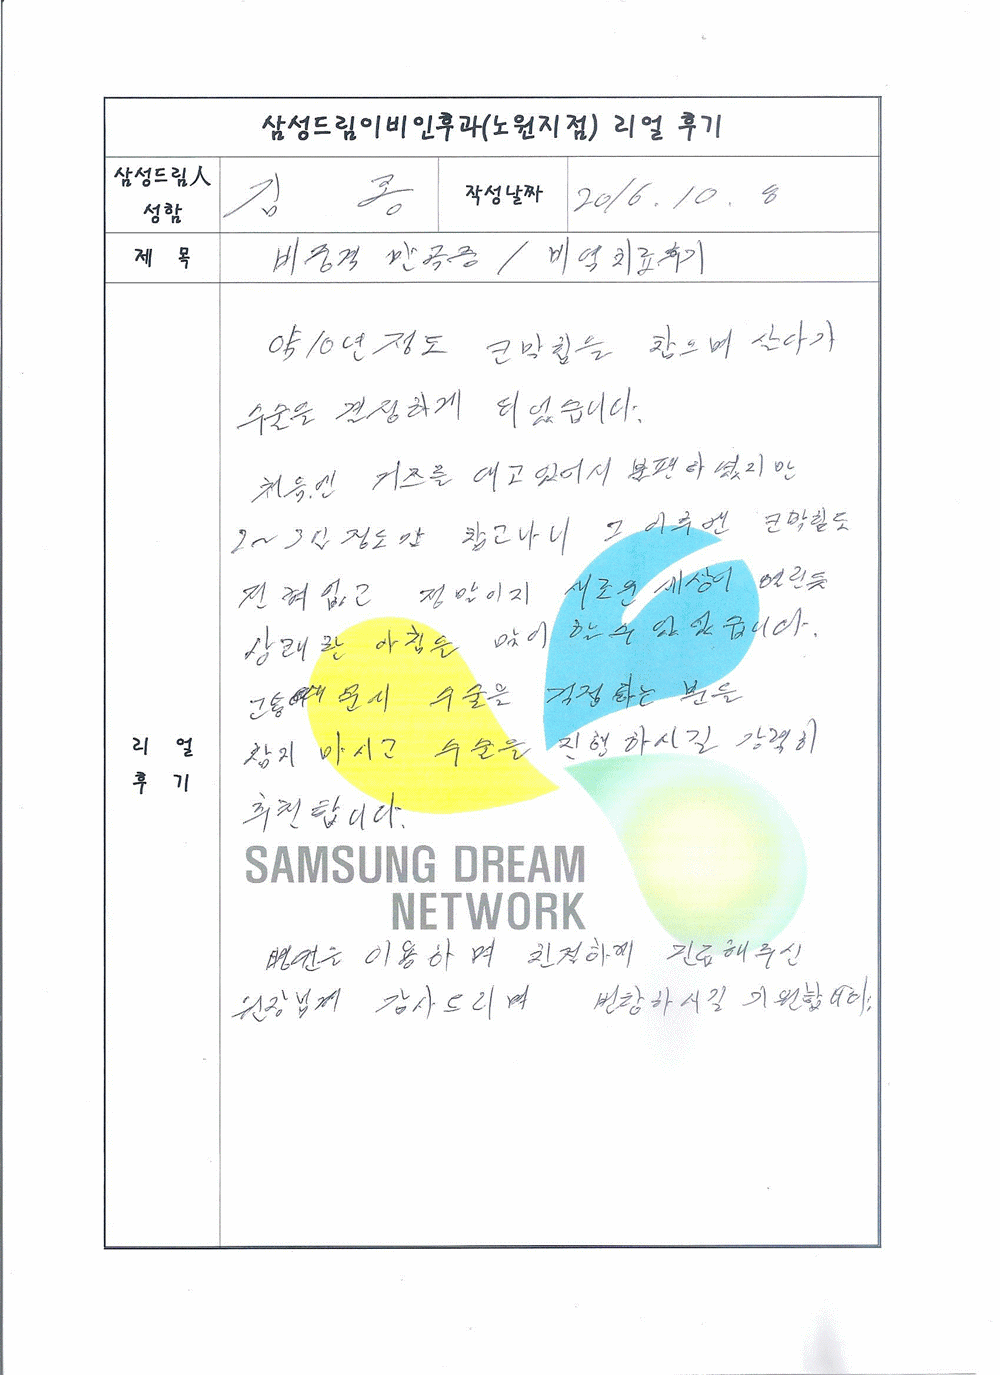 삼성드림이비인후과(노원지점) 리얼 후기
삼성드림人 성함
김 종
작성날짜
2016. 10. 8
제 목
비중격 만곡증 / 비염치료후기
리 얼 후 기
약 10년 정도 코막힘을 참으며 살다가
수술을 결정하게 되었습니다.
처음엔 거즈를 대고 있어서 불편하였지만
2~3일 정도만 참고나니 그 이후엔 코막힘도
전혀 없고 정말이지 새로운 세상이 열린듯
상쾌한 아침을 맞이 할 수 있었습니다.
고통때문에 수술을 걱정하는 분들
참지 마시고 수술을 진행하시길 강력히
추천합니다.
SAMSUNG DREAM
NETWORK
병원을 이용하며 친절하게 진료해주신
원장님께 감사드리며 번창하시길 기원합니다.